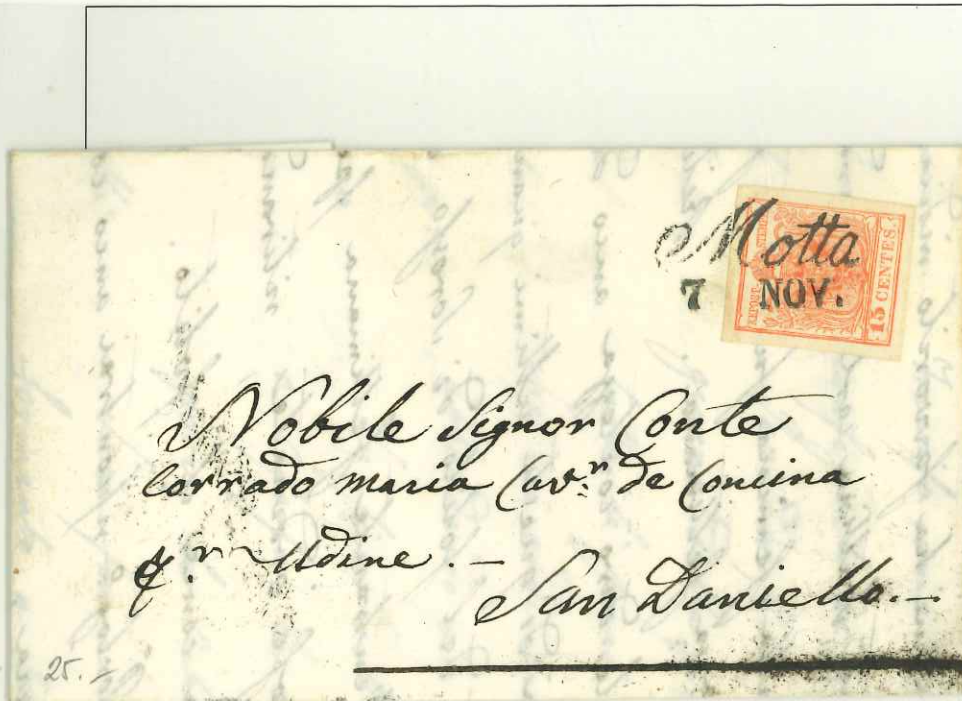 Motta
7 NOV.
15 CENTES.
Nobile Signor Conte
Corrado Maria Cav.r de Concina
p.r Udine. –
San Daniello. –
25. –